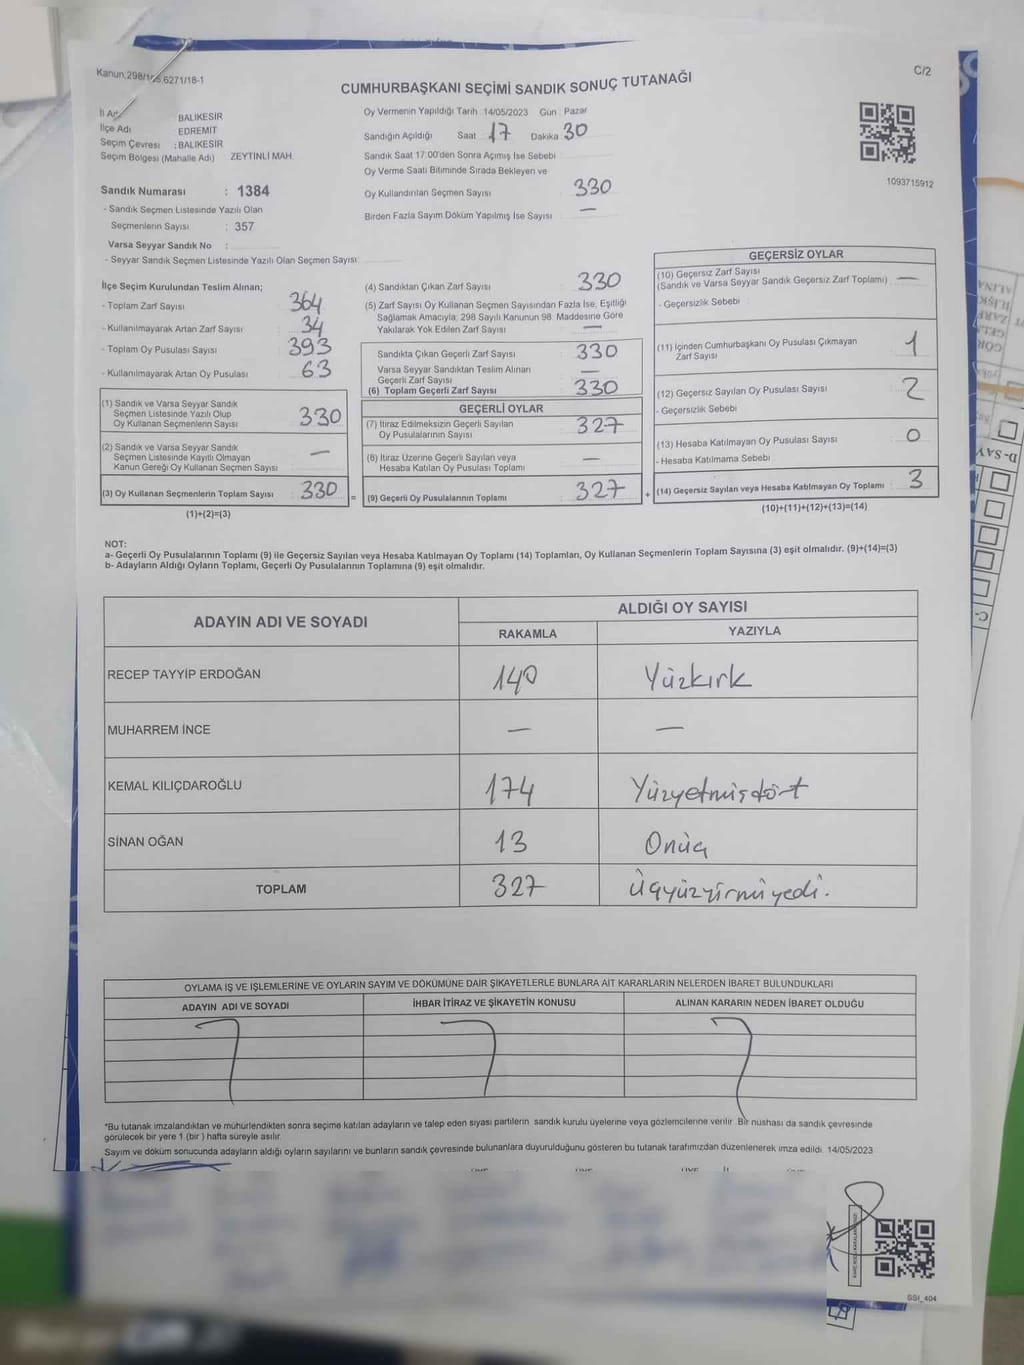 Kanun,298/105,6271/18-1
C/2
CUMHURBAŞKANI SEÇİMİ SANDIK SONUÇ TUTANAĞI
İl Adı BALIKESİR
İlçe Adı EDREMIT
Seçim Çevresi : BALIKESİR
Seçim Bölgesi (Mahalle Adı) ZEYTİNLİ MAH.
Sandık Numarası : 1384
- Sandık Seçmen Listesinde Yazılı Olan
Seçmenlerin Sayısı : 357
Varsa Seyyar Sandık No :
- Seyyar Sandık Seçmen Listesinde Yazılı Olan Seçmen Sayısı
Oy Vermenin Yapıldığı Tarih 14/05/2023 Gün : Pazar
Sandığın Açıldığı Saat 17 Dakika 30
Sandık Saat 17:00'den Sonra Açımış İse Sebebi
Oy Verme Saati Bitiminde Sırada Bekleyen ve
Oy Kullandırılan Seçmen Sayısı 330
Birden Fazla Sayım Döküm Yapılmış İse Sayısı —
1093715912
İlçe Seçim Kurulundan Teslim Alınan;
- Toplam Zarf Sayısı 364
- Kullanılmayarak Artan Zarf Sayısı 34
- Toplam Oy Pusulası Sayısı 393
- Kullanılmayarak Artan Oy Pusulası 63
(1) Sandık ve Varsa Seyyar Sandık
Seçmen Listesinde Yazılı Olup
Oy Kullanan Seçmenlerin Sayısı 330
(2) Sandık ve Varsa Seyyar Sandık
Seçmen Listesinde Kayıtlı Olmayan
Kanun Gereği Oy Kullanan Seçmen Sayısı —
(3) Oy Kullanan Seçmenlerin Toplam Sayısı 330 =
(1)+(2)=(3)
(4) Sandıktan Çıkan Zarf Sayısı 330
(5) Zarf Sayısı Oy Kullanan Seçmen Sayısından Fazla İse, Eşitliği
Sağlamak Amacıyla; 298 Sayılı Kanunun 98. Maddesine Göre
Yakılarak Yok Edilen Zarf Sayısı —
Sandıkta Çıkan Geçerli Zarf Sayısı 330
Varsa Seyyar Sandıktan Teslim Alınan
Geçerli Zarf Sayısı —
(6) Toplam Geçerli Zarf Sayısı 330
GEÇERLİ OYLAR
(7) İtiraz Edilmeksizin Geçerli Sayılan
Oy Pusulalarının Sayısı 327
(8) İtiraz Üzerine Geçerli Sayılan veya
Hesaba Katılan Oy Pusulası Toplamı —
(9) Geçerli Oy Pusulalarının Toplamı 327 +
GEÇERSİZ OYLAR
(10) Geçersiz Zarf Sayısı
(Sandık ve Varsa Seyyar Sandık Geçersiz Zarf Toplamı) —
- Geçersizlik Sebebi
(11) İçinden Cumhurbaşkanı Oy Pusulası Çıkmayan
Zarf Sayısı 1
(12) Geçersiz Sayılan Oy Pusulası Sayısı 2
- Geçersizlik Sebebi
(13) Hesaba Katılmayan Oy Pusulası Sayısı 0
- Hesaba Katılmama Sebebi
(14) Geçersiz Sayılan veya Hesaba Katılmayan Oy Toplamı 3
(10)+(11)+(12)+(13)=(14)
NOT:
a- Geçerli Oy Pusulalarının Toplamı (9) ile Geçersiz Sayılan veya Hesaba Katılmayan Oy Toplamı (14) Toplamları, Oy Kullanan Seçmenlerin Toplam Sayısına (3) eşit olmalıdır. (9)+(14)=(3)
b- Adayların Aldığı Oyların Toplamı, Geçerli Oy Pusulalarının Toplamına (9) eşit olmalıdır.
ADAYIN ADI VE SOYADI
ALDIĞI OY SAYISI
RAKAMLA YAZIYLA
RECEP TAYYİP ERDOĞAN 140 Yüzkırk
MUHARREM İNCE — —
KEMAL KILIÇDAROĞLU 174 Yüzyetmişdört
SİNAN OĞAN 13 Onüç
TOPLAM 327 Üçyüzyirmiyedi.
OYLAMA İŞ VE İŞLEMLERİNE VE OYLARIN SAYIM VE DÖKÜMÜNE DAİR ŞİKAYETLERLE BUNLARA AİT KARARLARIN NELERDEN İBARET BULUNDUKLARI
ADAYIN ADI VE SOYADI İHBAR İTİRAZ VE ŞİKAYETİN KONUSU ALINAN KARARIN NEDEN İBARET OLDUĞU
*Bu tutanak imzalandıktan ve mühürlendikten sonra seçime katılan adayların ve talep eden siyasi partilerin sandık kurulu üyelerine veya gözlemcilerine verilir. Bir nüshası da sandık çevresinde
görülecek bir yere 1 (bir ) hafta süreyle asılır.
Sayım ve döküm sonucunda adayların aldığı oyların sayılarını ve bunların sandık çevresinde bulunanlara duyurulduğunu gösteren bu tutanak tarafımızdan düzenlenerek imza edildi. 14/05/2023
GSI_404